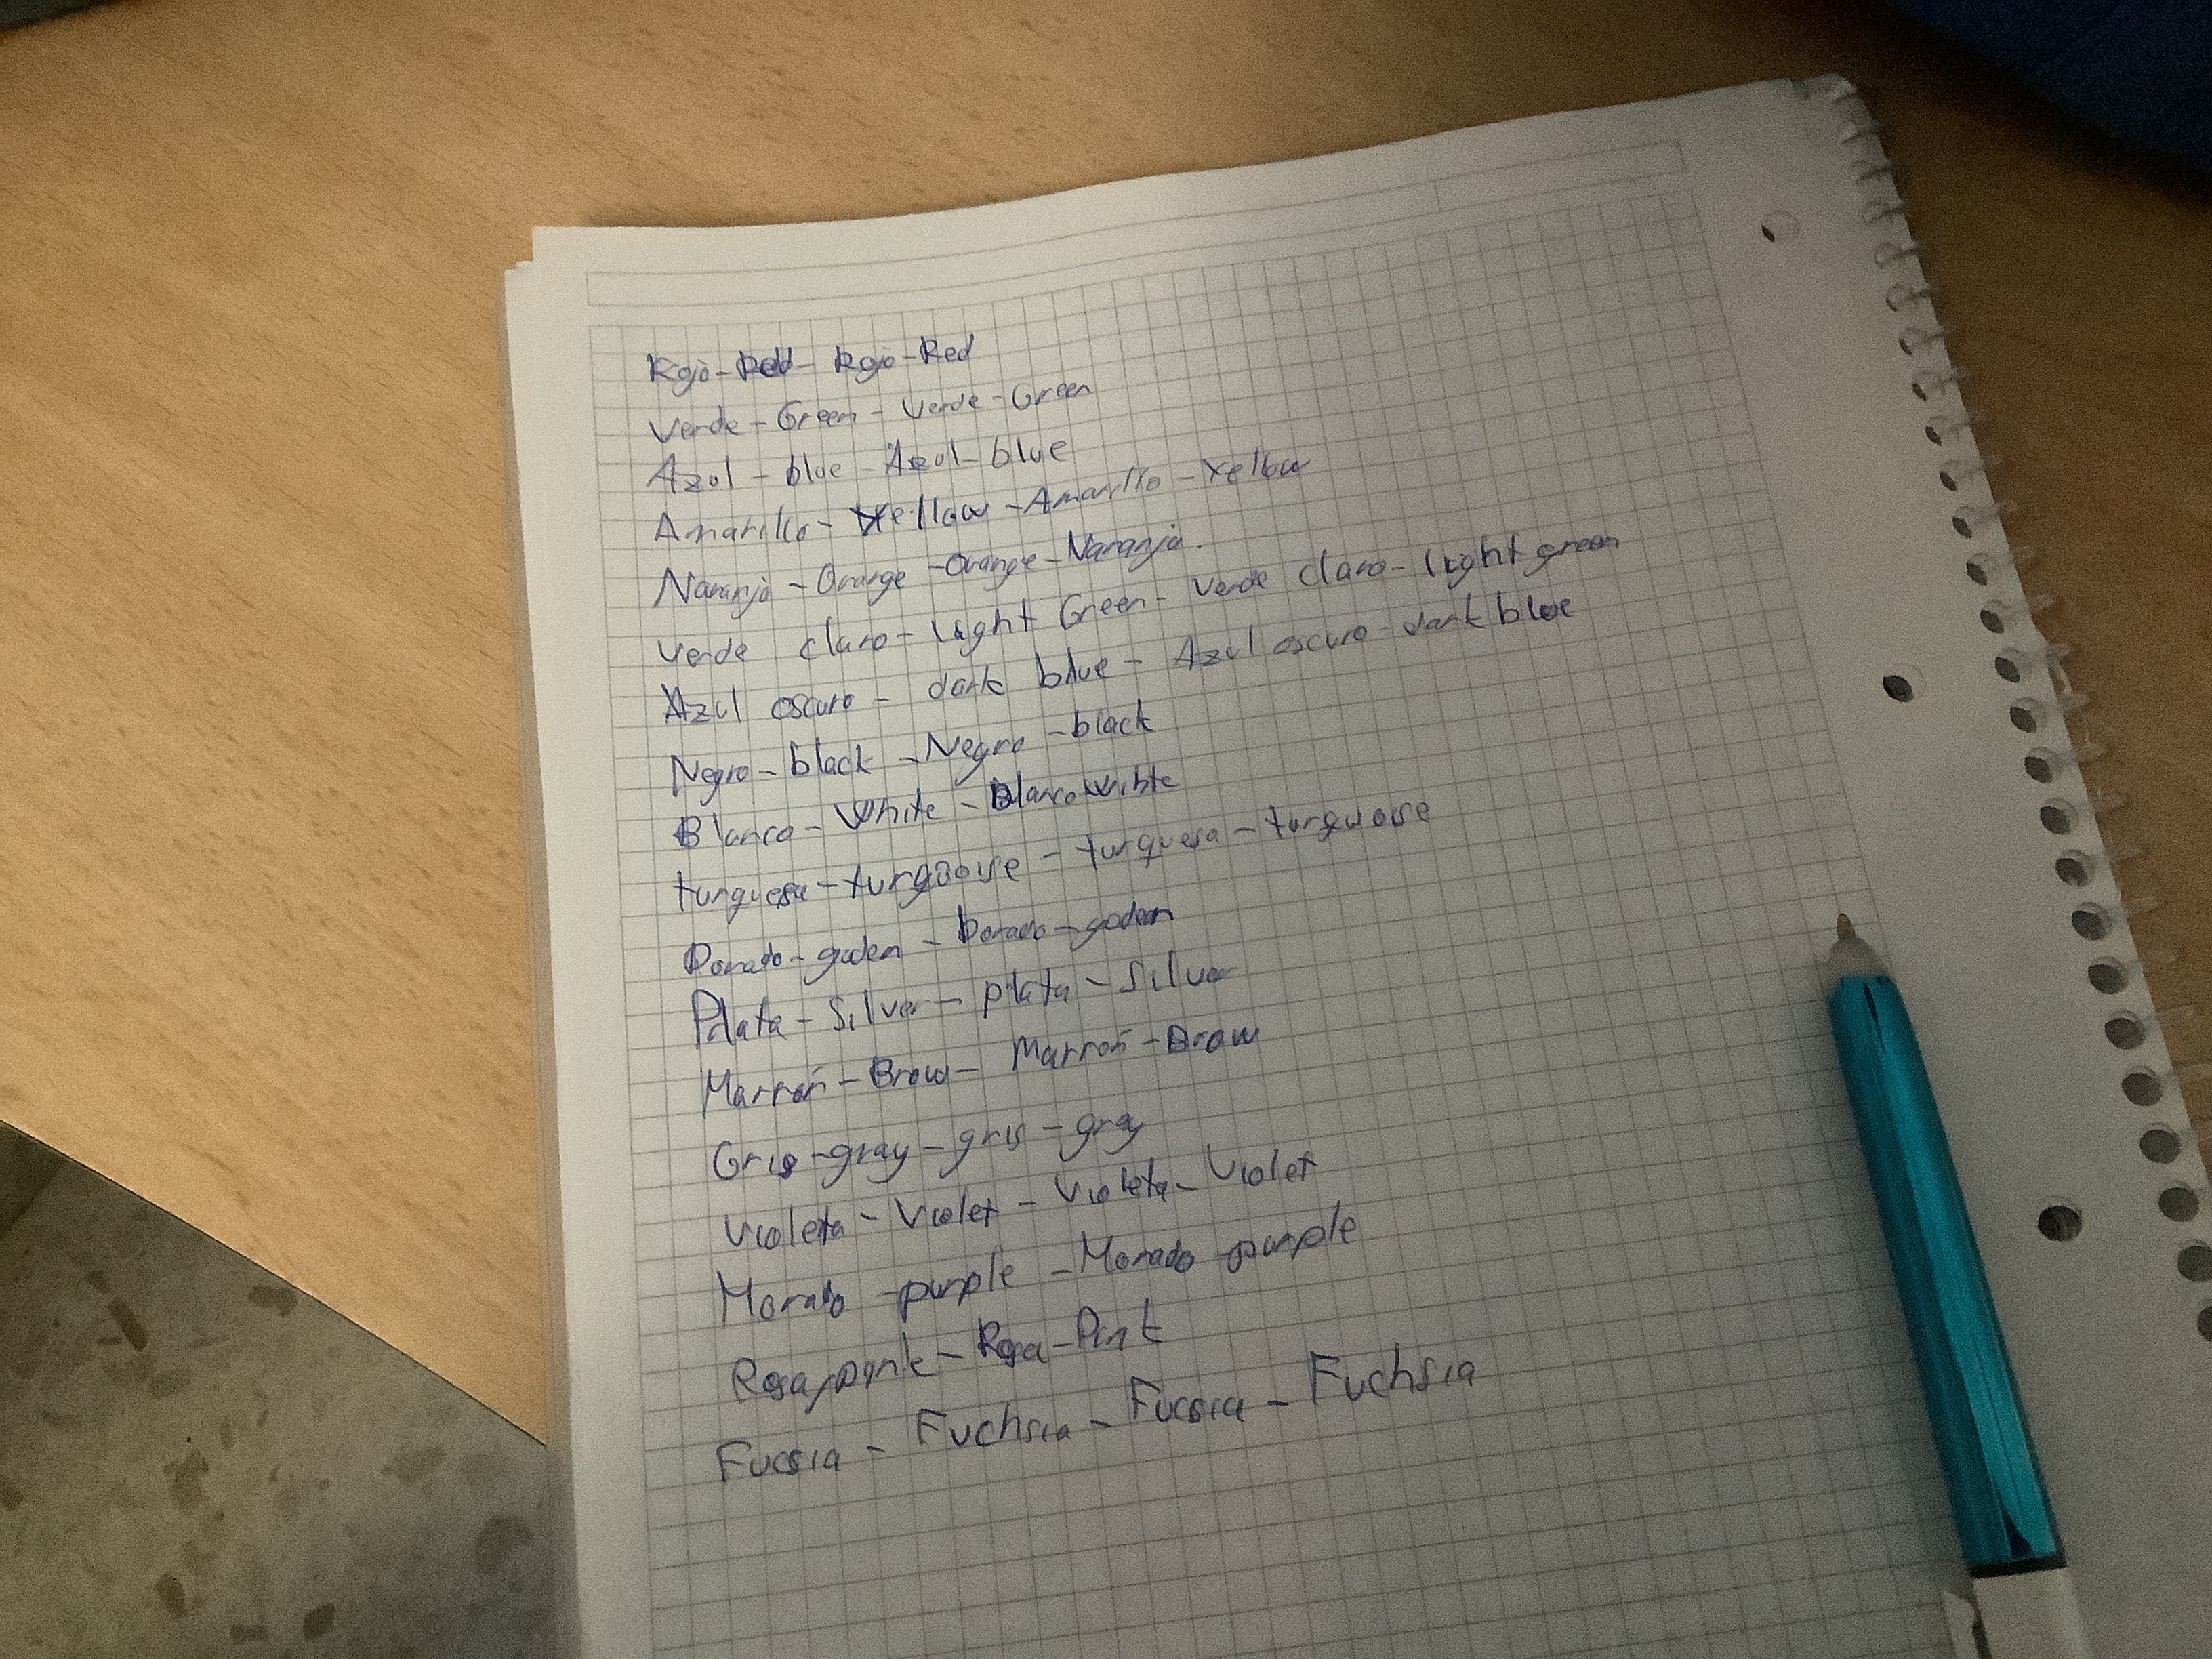 Rojo - Red - Rojo - Red
Verde - Green - Verde - Green
Azul - blue - Azul - blue
Amarillo - Yellow - Amarillo - Yellow
Naranja - Orange - Orange - Naranja.
Verde claro - Light Green - Verde claro - Light green
Azul oscuro - dark blue - Azul oscuro - dark blue
Negro - black - Negro - black
Blanco - White - Blanco
turquesa - turquoise - turquesa - turquoise
Dorado - - Dorado -
Plata - Silver - plata - Silver
Marrón - Brow - Marrón - Brow
Gris - gray - gris - gray
Violeta - Violet - Violeta - Violet
Morado - purple - Morado - purple
Rosa pink - Rosa - Pink
Fucsia - Fuchsia - Fucsia - Fuchsia